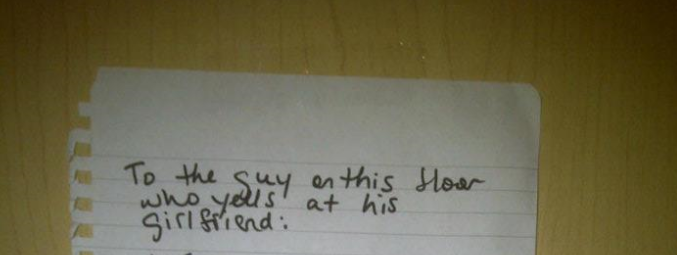 To the guy on this floor
who yells at his
girlfriend: